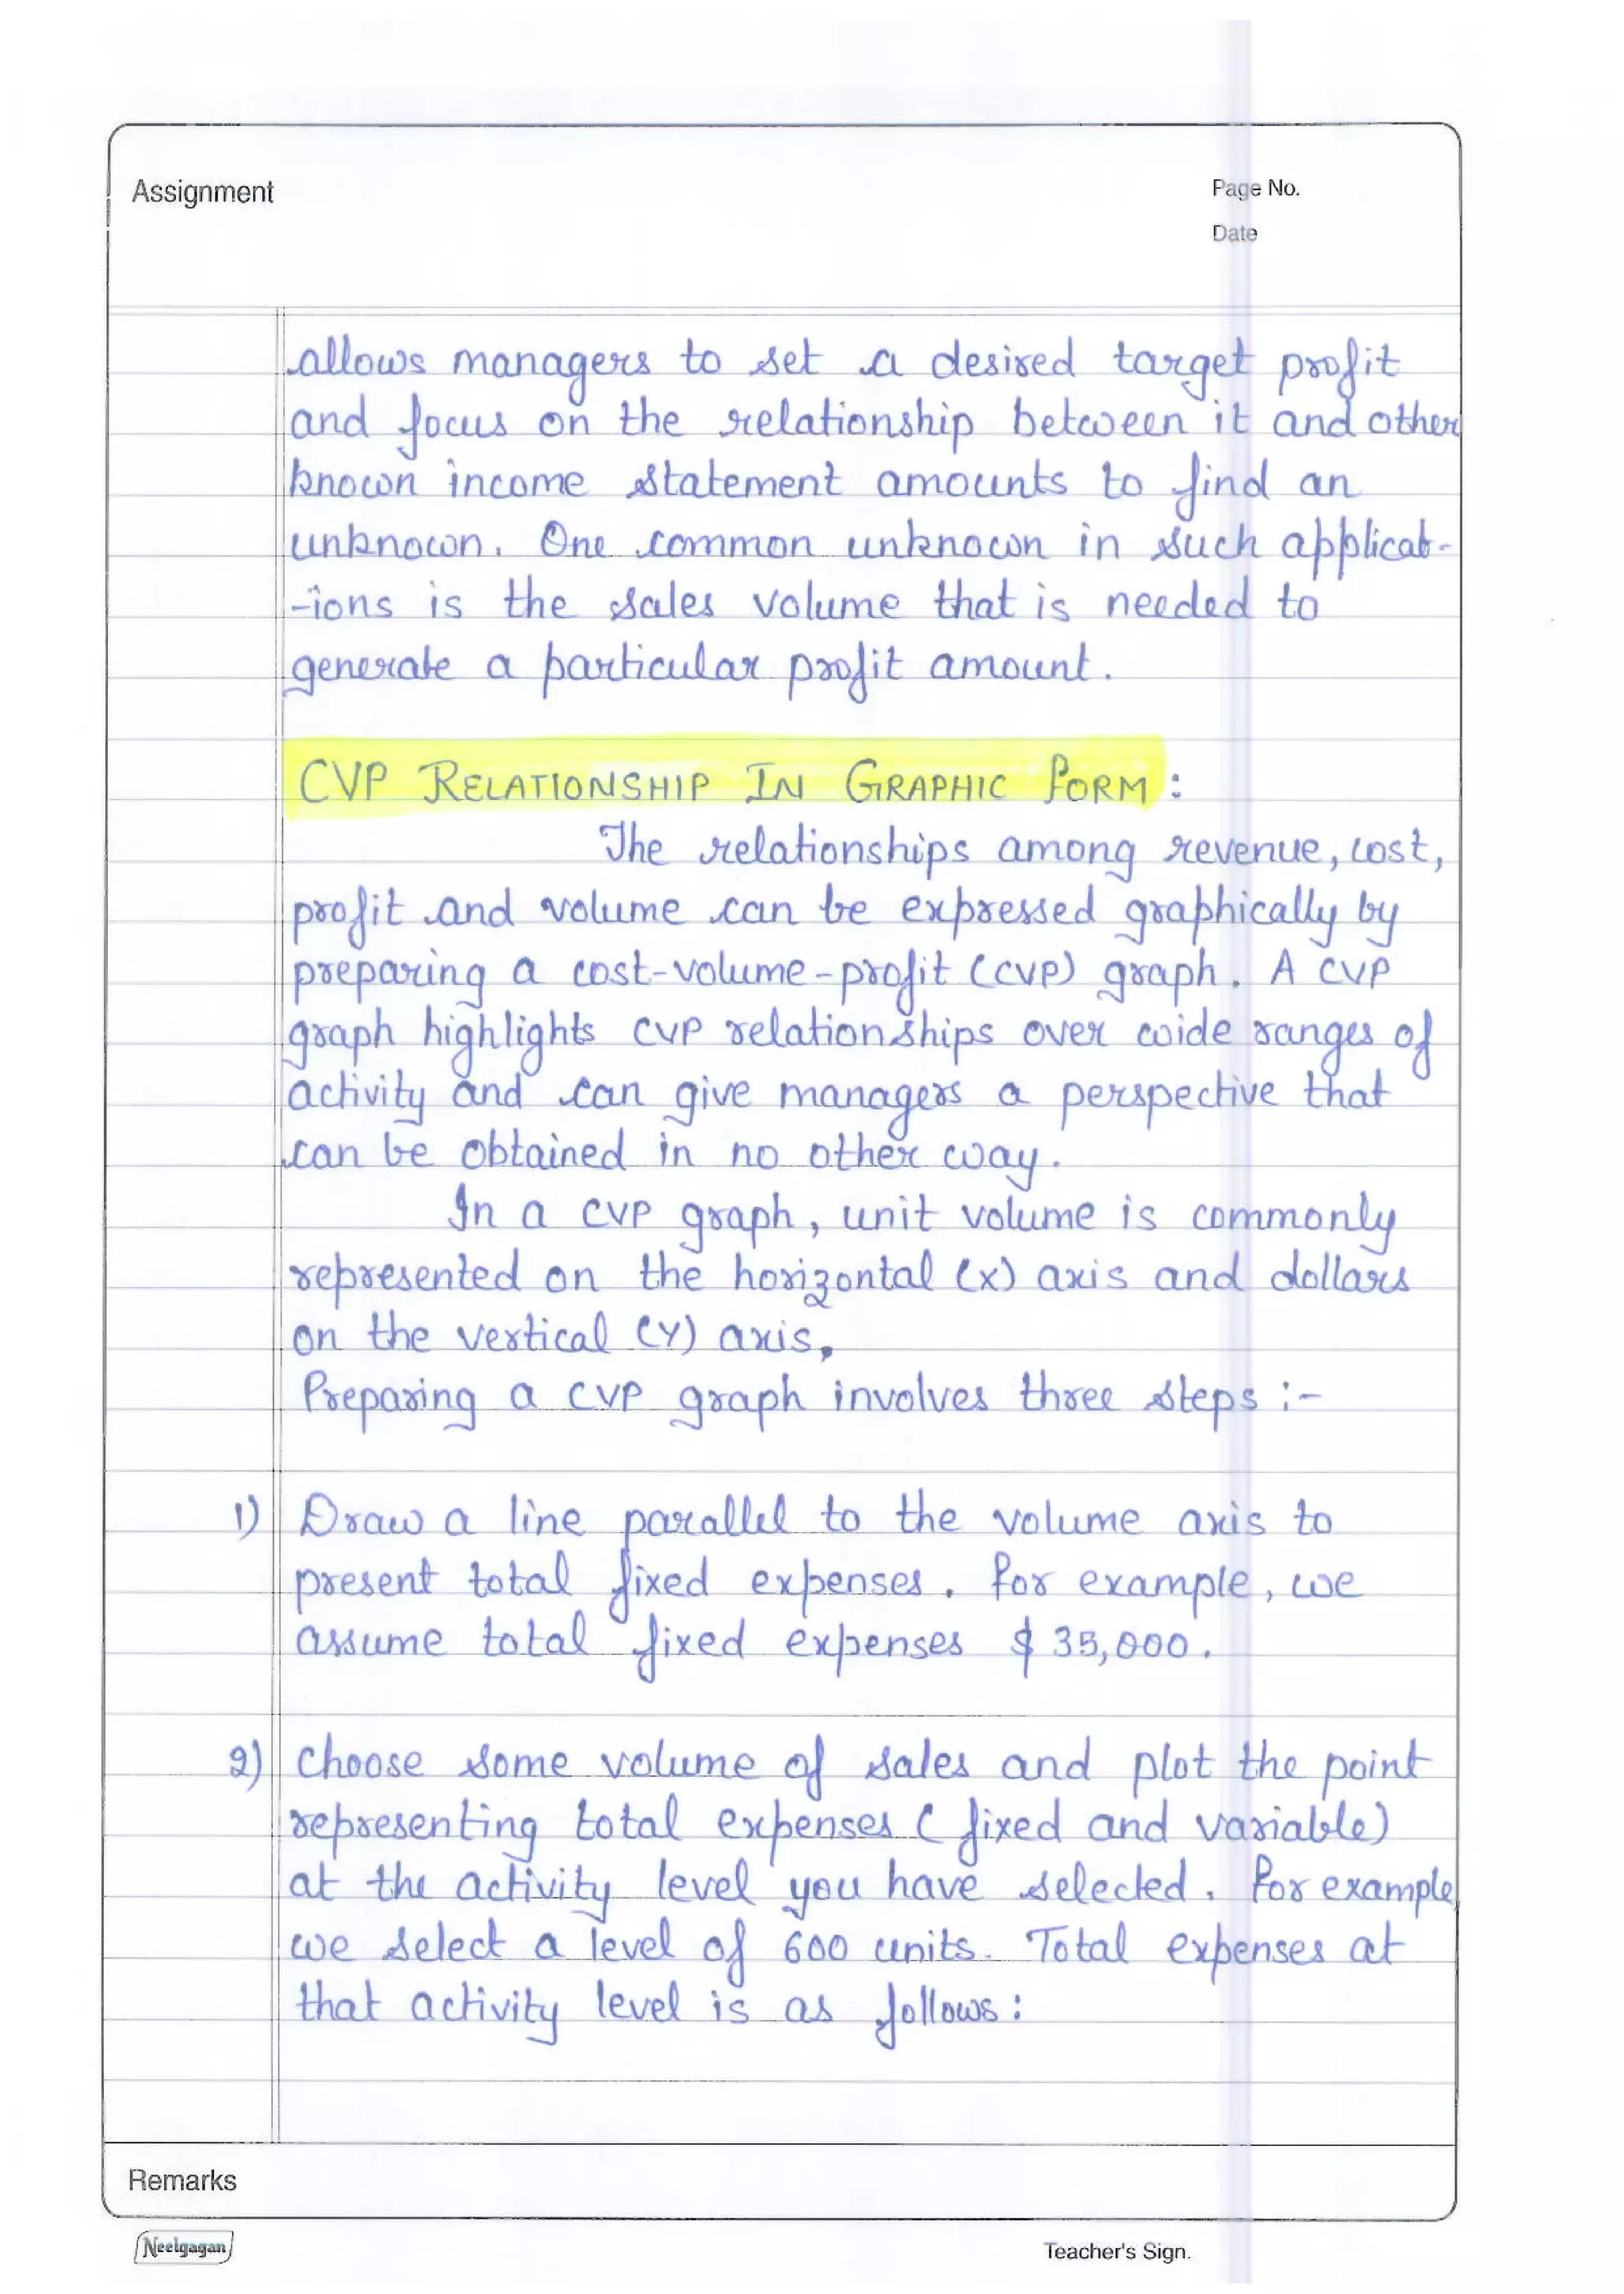 Assignment
Page No.
Date
allows managers to set a desired target profit
and focus on the relationship between it and other
known income statement amounts to find an
unknown. One common unknown in such applicat-
-ions is the sales volume that is needed to
generate a particular profit amount.
CVP RELATIONSHIP IN GRAPHIC FORM :
The relationships among revenue, cost,
profit and volume can be expressed graphically by
preparing a cost-volume-profit (CVP) graph. A CVP
graph highlights CVP relationships over wide ranges of
activity and can give managers a perspective that
can be obtained in no other way.
In a CVP graph, unit volume is commonly
represented on the horizontal (X) axis and dollars
on the vertical (Y) axis.
Preparing a CVP graph involves three steps :-
1) Draw a line parallel to the volume axis to
present total fixed expenses. For example, we
assume total fixed expenses $ 35,000.
2) Choose some volume of sales and plot the point
representing total expenses (fixed and variable)
at the activity level you have selected. For example
we select a level of 600 units. Total expenses at
that activity level is as follows :
Remarks
Neelgagan
Teacher's Sign.